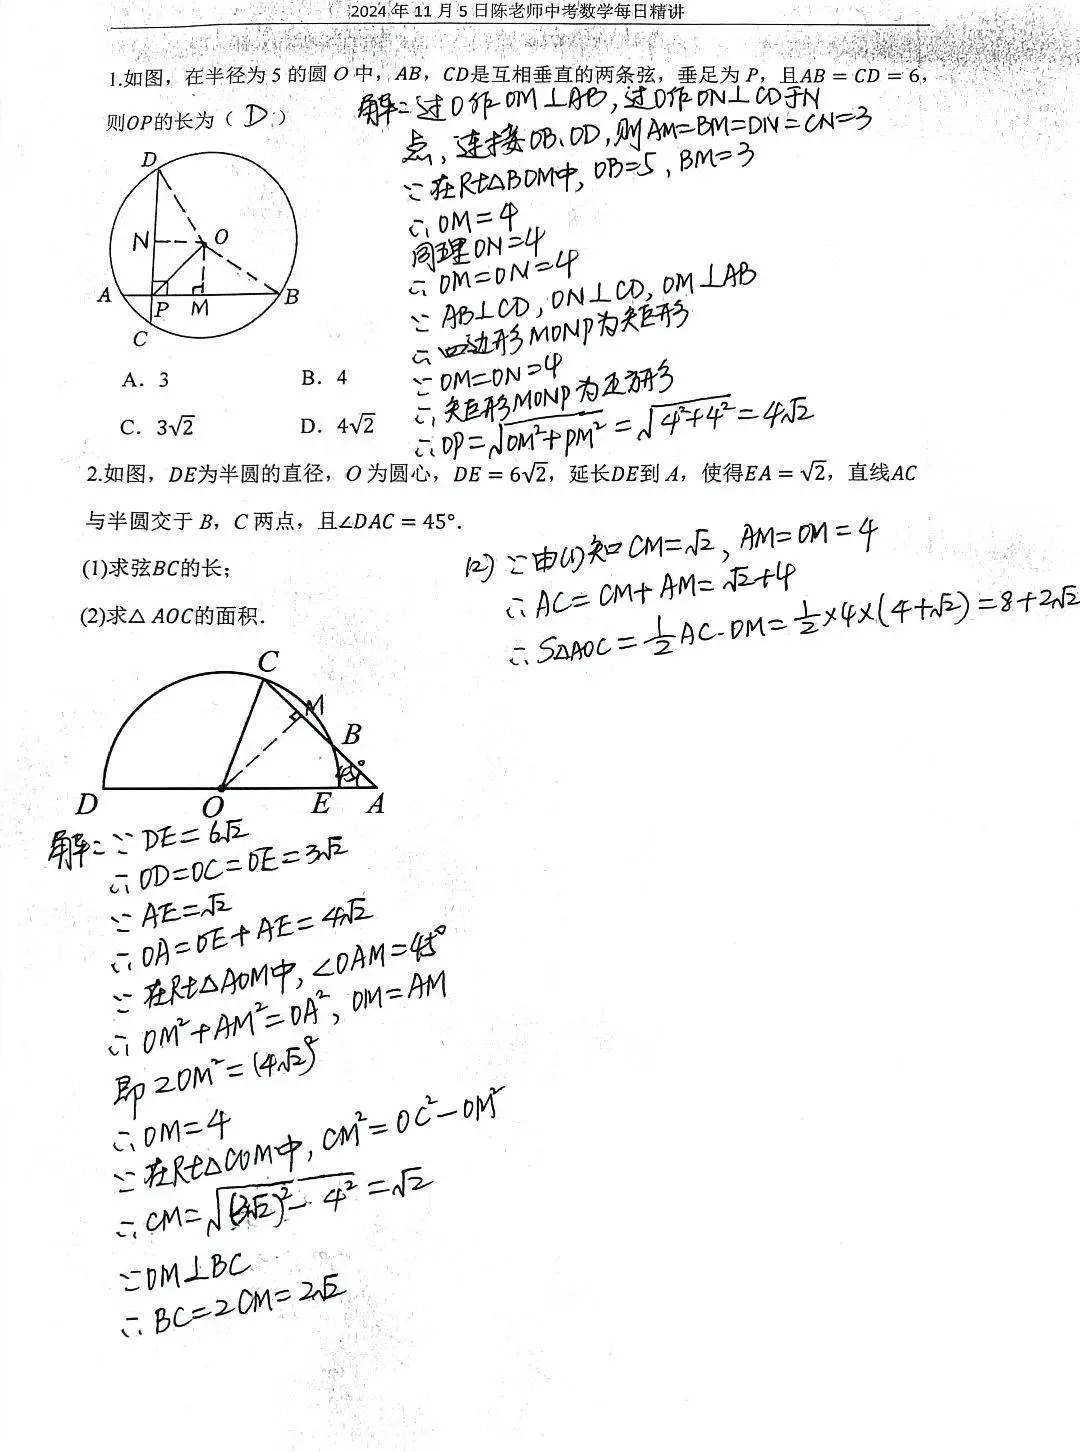 2024 年 11 月 5 日陈老师中考数学每日精讲
1.如图，在半径为 5 的圆 O 中，AB，CD是互相垂直的两条弦，垂足为 P，且AB = CD = 6，
则OP的长为（ D ）
解：过O作OM⊥AB，过O作ON⊥CD于N
点，连接OB、OD，则AM=BM=DN=CN=3
∵在Rt△BOM中，OB=5，BM=3
∴OM=4
同理ON=4
∴OM=ON=4
∵AB⊥CD，ON⊥CD，OM⊥AB
∴四边形MONP为矩形
∵OM=ON=4
∴矩形MONP为正方形
∴OP=√(OM²+PM²)=√(4²+4²)=4√2
D
N
O
A
P
M
B
C
A．3
B．4
C．3√2
D．4√2
2.如图，DE为半圆的直径，O 为圆心，DE = 6√2，延长DE到 A，使得EA = √2，直线AC
与半圆交于 B，C 两点，且∠DAC = 45°．
(1)求弦BC的长；
(2)求△ AOC的面积．
(2)∵由(1)知CM=√2，AM=OM=4
∴AC=CM+AM=√2+4
∴S△AOC=½AC·OM=½×4×(4+√2)=8+2√2
C
M
B
45°
D
O
E
A
解：∵DE=6√2
∴OD=OC=OE=3√2
∵AE=√2
∴OA=OE+AE=4√2
∵在Rt△AOM中，∠OAM=45°
∴OM²+AM²=OA²，OM=AM
即2OM²=(4√2)²
∴OM=4
∵在Rt△COM中，CM²=OC²-OM²
∴CM=√((3√2)²-4²)=√2
∵OM⊥BC
∴BC=2CM=2√2